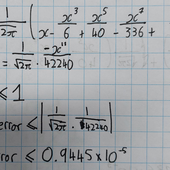 1/√2π (x - x³/6 + x⁵/40 - x⁷/336 +
= 1/√2π · -x¹¹/42240
≤ 1
error ≤ |1/√2π · 1/42240|
error ≤ 0.9445×10⁻⁵